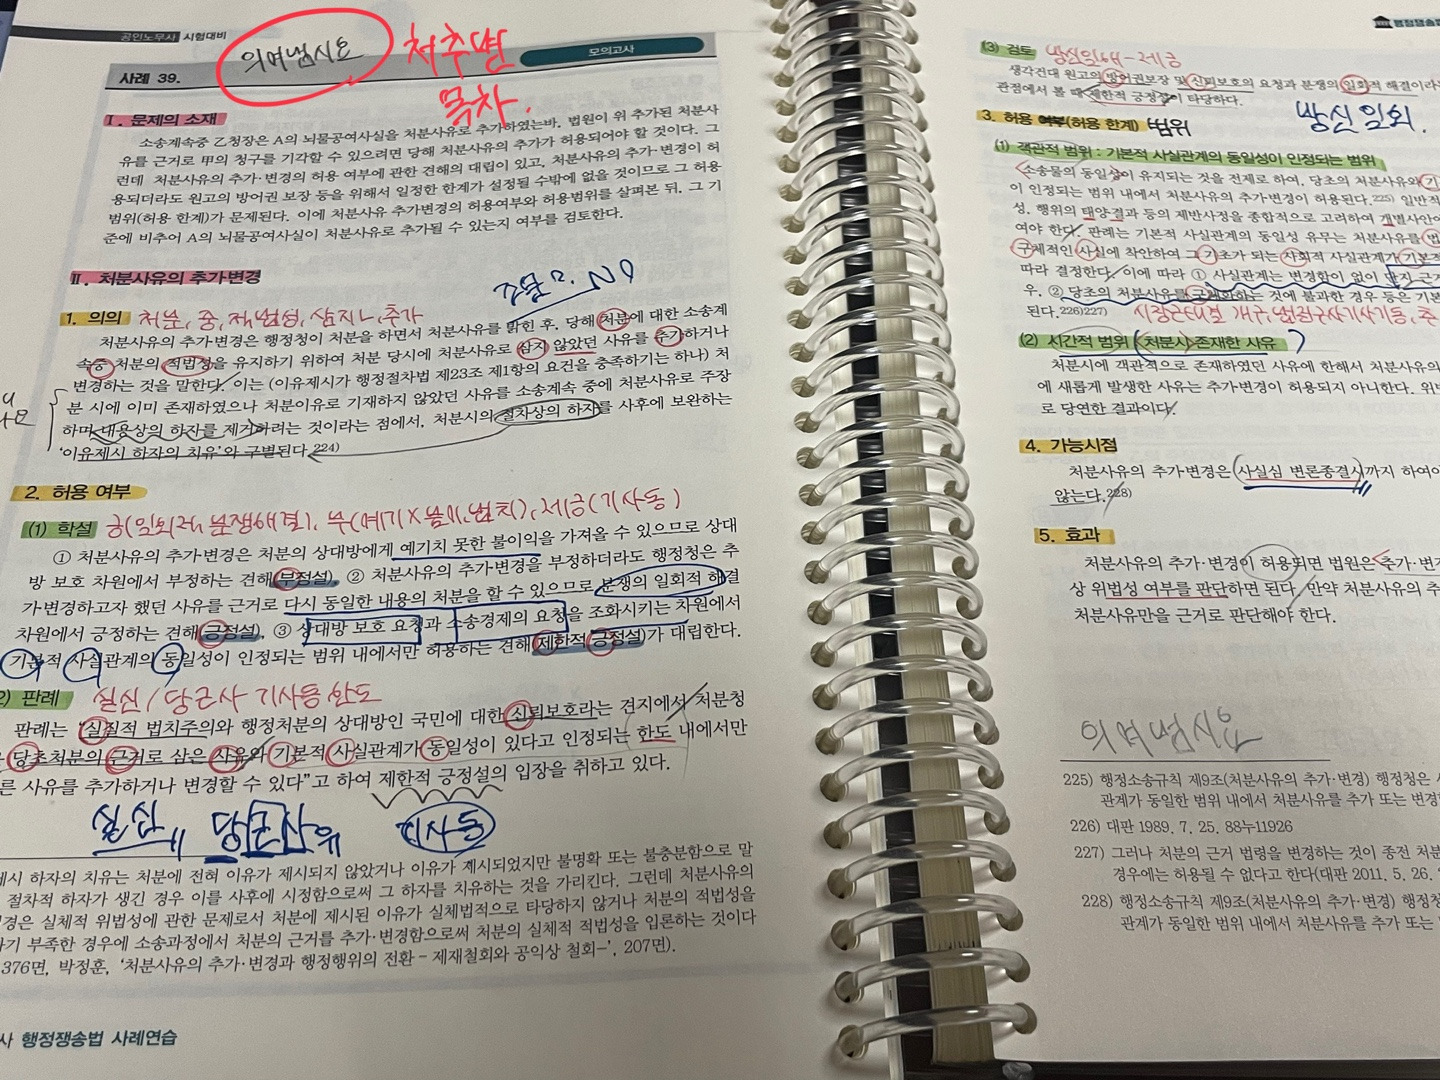 공인노무사 시험대비
의여범시요
처추변
목차.
모의고사
사례 39.
I. 문제의 소재
소송계속중 乙청장은 A의 뇌물공여사실을 처분사유로 추가하였는바, 법원이 위 추가된 처분사
유를 근거로 甲의 청구를 기각할 수 있으려면 당해 처분사유의 추가가 허용되어야 할 것이다. 그
런데 처분사유의 추가·변경의 허용 여부에 관한 견해의 대립이 있고, 처분사유의 추가·변경이 허
용되더라도 원고의 방어권 보장 등을 위해서 일정한 한계가 설정될 수밖에 없을 것이므로 그 허용
범위(허용 한계)가 문제된다. 이에 처분사유 추가변경의 허용여부와 허용범위를 살펴본 뒤, 그 기
준에 비추어 A의 뇌물공여사실이 처분사유로 추가될 수 있는지 여부를 검토한다.
II. 처분사유의 추가·변경
NO
1. 의의
처분, 중, 적법성, 삼지ㄴ, 추가
처분사유의 추가·변경은 행정청이 처분을 하면서 처분사유를 밝힌 후, 당해 처분에 대한 소송계
속중 처분의 적법성을 유지하기 위하여 처분 당시에 처분사유로 삼지 않았던 사유를 추가하거나
변경하는 것을 말한다. 이는 (이유제시가 행정절차법 제23조 제1항의 요건을 충족하기는 하나) 처
분 시에 이미 존재하였으나 처분이유로 기재하지 않았던 사유를 소송계속 중에 처분사유로 주장
하며 내용상의 하자를 제거하려는 것이라는 점에서, 처분시의 절차상의 하자를 사후에 보완하는
‘이유제시 하자의 치유’와 구별된다.224)
2. 허용 여부
(1) 학설
긍(일회적, 분쟁해결), 부(예기X불이, 법치), 제긍(기사동)
① 처분사유의 추가·변경은 처분의 상대방에게 예기치 못한 불이익을 가져올 수 있으므로 상대
방 보호 차원에서 부정하는 견해(부정설), ② 처분사유의 추가·변경을 부정하더라도 행정청은 추
가변경하고자 했던 사유를 근거로 다시 동일한 내용의 처분을 할 수 있으므로 분쟁의 일회적 해결
차원에서 긍정하는 견해(긍정설), ③ 상대방 보호 요청과 소송경제의 요청을 조화시키는 차원에서
기본적 사실관계의 동일성이 인정되는 범위 내에서만 허용하는 견해(제한적 긍정설)가 대립한다.
2) 판례
실신 / 당근사 기사동 한도
판례는 “실질적 법치주의와 행정처분의 상대방인 국민에 대한 신뢰보호라는 견지에서 처분청
당초처분의 근거로 삼은 사유와 기본적 사실관계가 동일성이 있다고 인정되는 한도 내에서만
른 사유를 추가하거나 변경할 수 있다”고 하여 제한적 긍정설의 입장을 취하고 있다.
실신 당근사유 기사동
제시 하자의 치유는 처분에 전혀 이유가 제시되지 않았거나 이유가 제시되었지만 불명확 또는 불충분함으로 말
절차적 하자가 생긴 경우 이를 사후에 시정함으로써 그 하자를 치유하는 것을 가리킨다. 그런데 처분사유의
변경은 실체적 위법성에 관한 문제로서 처분에 제시된 이유가 실체법적으로 타당하지 않거나 처분의 적법성을
하기 부족한 경우에 소송과정에서 처분의 근거를 추가·변경함으로써 처분의 실체적 적법성을 입론하는 것이다
376면, 박정훈, ‘처분사유의 추가·변경과 행정행위의 전환 - 제재철회와 공익상 철회-’, 207면).
사 행정쟁송법 사례연습
행정쟁송법
(3) 검토
방신일해-제긍
생각건대 원고의 방어권보장 및 신뢰보호의 요청과 분쟁의 일회적 해결이라
관점에서 볼 때 제한적 긍정설이 타당하다.
방신일회.
3. 허용 여부(허용 한계) 범위
(1) 객관적 범위 : 기본적 사실관계의 동일성이 인정되는 범위
소송물의 동일성이 유지되는 것을 전제로 하여, 당초의 처분사유와 기
이 인정되는 범위 내에서 처분사유의 추가·변경이 허용된다.225) 일반적
성, 행위의 태양결과 등의 제반사정을 종합적으로 고려하여 개별사안에
여야 한다. 판례는 기본적 사실관계의 동일성 유무는 처분사유를 법
구체적인 사실에 착안하여 그 기초가 되는 사회적 사실관계가 기본적
따라 결정한다. 이에 따라 ① 사실관계는 변경함이 없이 단지 근거
우, ② 당초의 처분사유를 구체화하는 것에 불과한 경우 등은 기본
된다.226)227)
(2) 시간적 범위 (처분시 존재한 사유)
처분시에 객관적으로 존재하였던 사유에 한해서 처분사유의
에 새롭게 발생한 사유는 추가변경이 허용되지 아니한다. 위법
로 당연한 결과이다.
4. 가능시점
처분사유의 추가변경은 사실심 변론종결시까지 하여야
않는다.228)
5. 효과
처분사유의 추가·변경이 허용되면 법원은 추가·변경
상 위법성 여부를 판단하면 된다. 만약 처분사유의 추
처분사유만을 근거로 판단해야 한다.
의여범시요
225) 행정소송규칙 제9조(처분사유의 추가·변경) 행정청은 사
관계가 동일한 범위 내에서 처분사유를 추가 또는 변경
226) 대판 1989. 7. 25. 88누11926
227) 그러나 처분의 근거 법령을 변경하는 것이 종전 처분
경우에는 허용될 수 없다고 한다(대판 2011. 5. 26.
228) 행정소송규칙 제9조(처분사유의 추가·변경) 행정청
관계가 동일한 범위 내에서 처분사유를 추가 또는